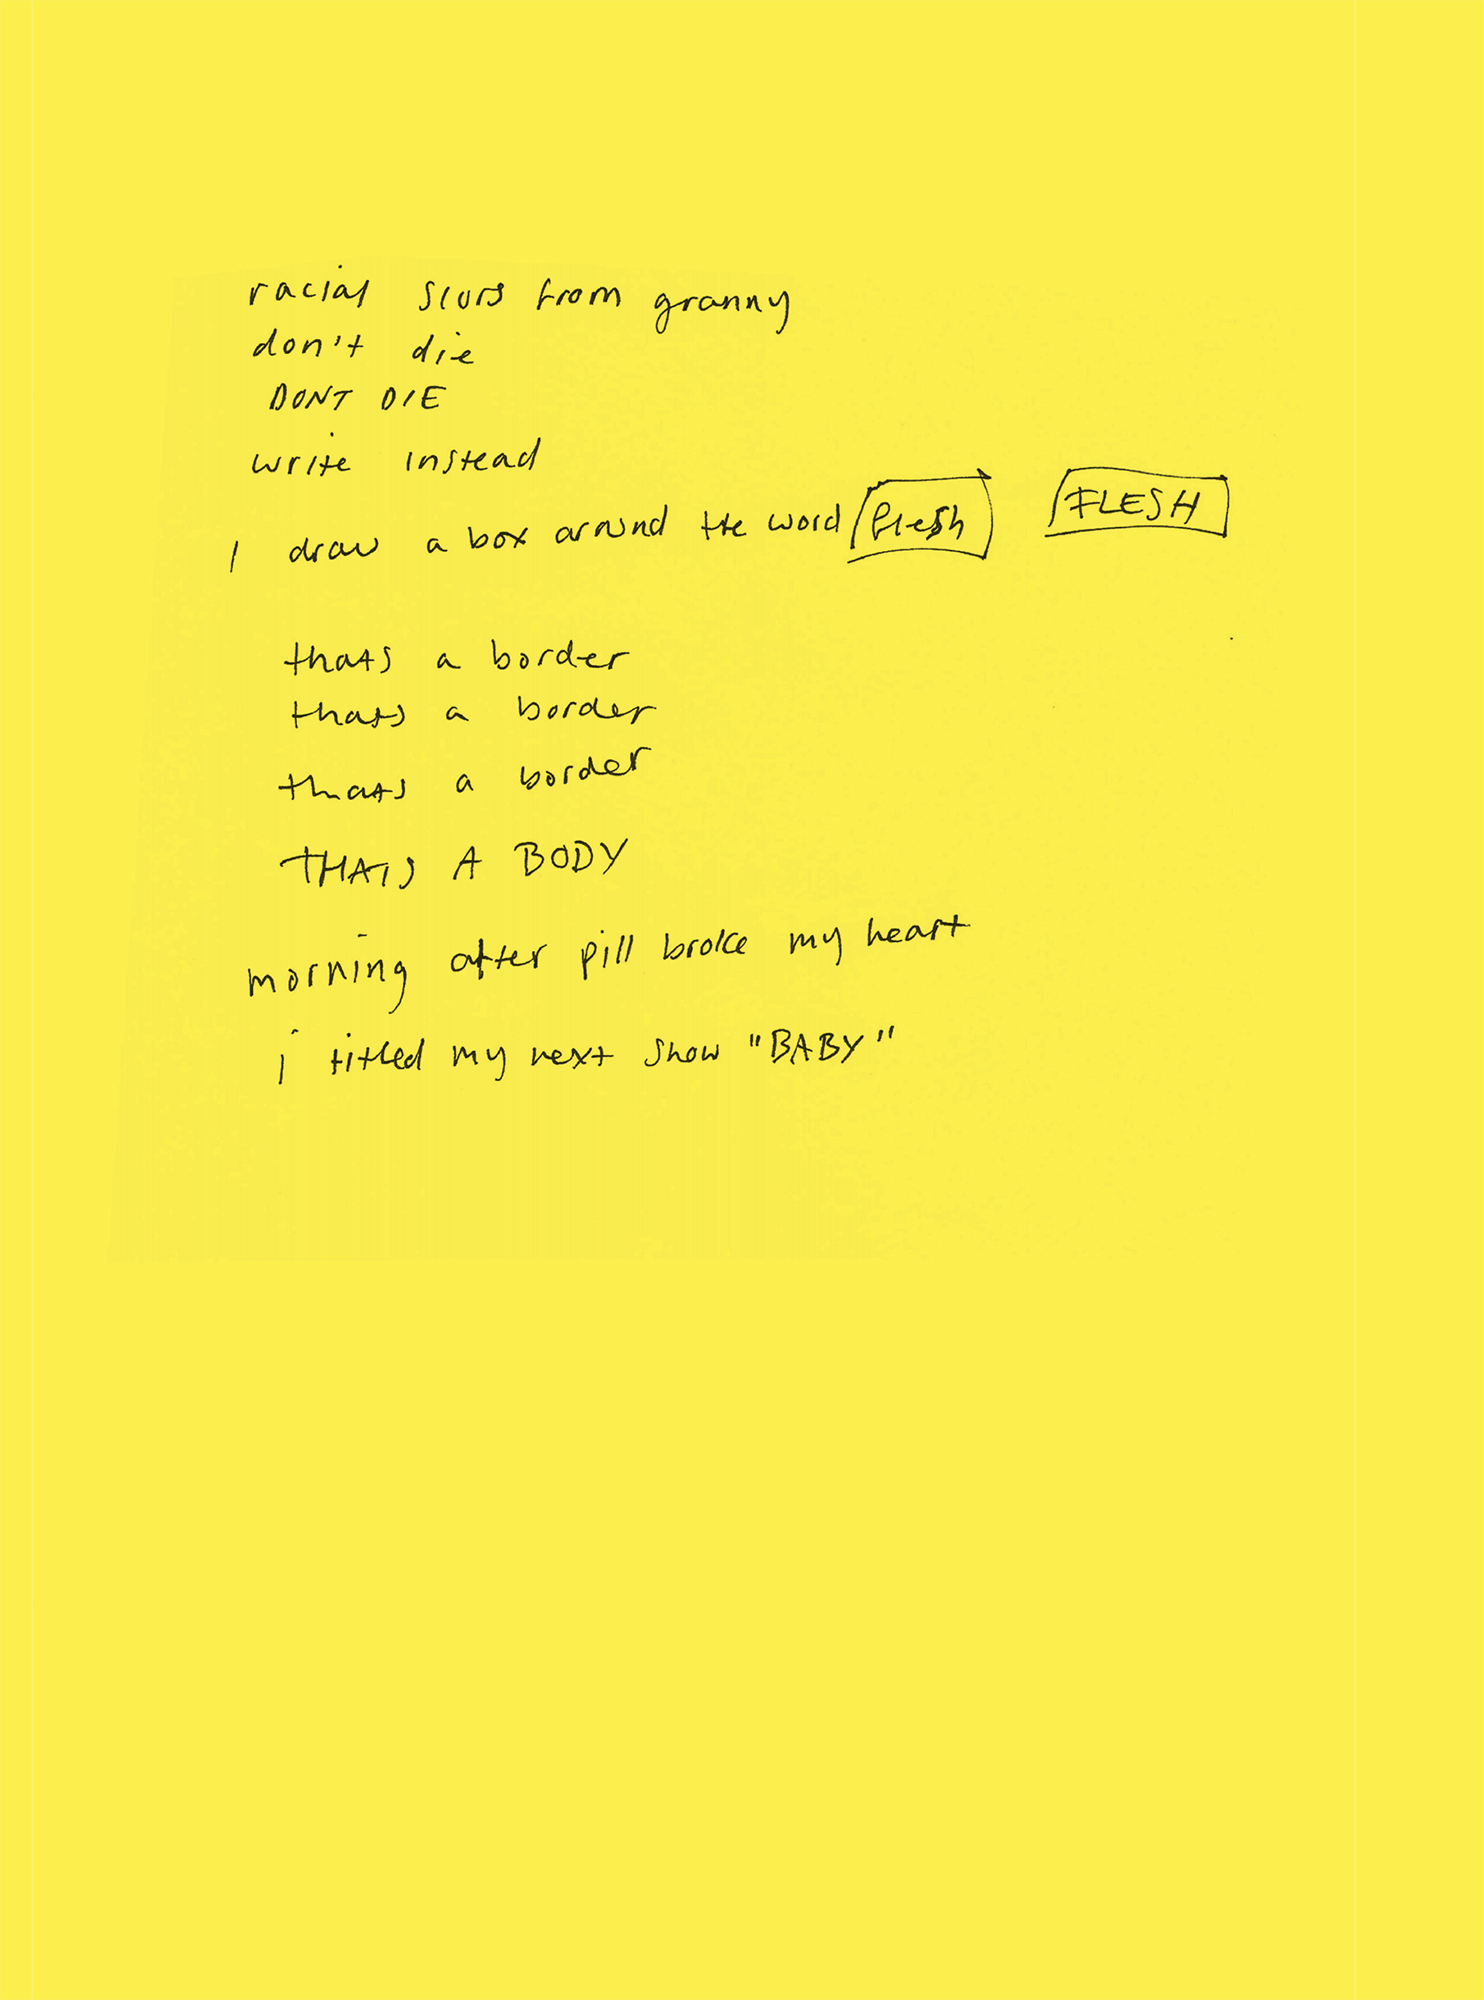 racial slurs from granny
don't die
DONT DIE
write instead
I draw a box around the word flesh FLESH
thats a border
thats a border
thats a border
THATS A BODY
morning after pill broke my heart
i titled my next show "BABY"